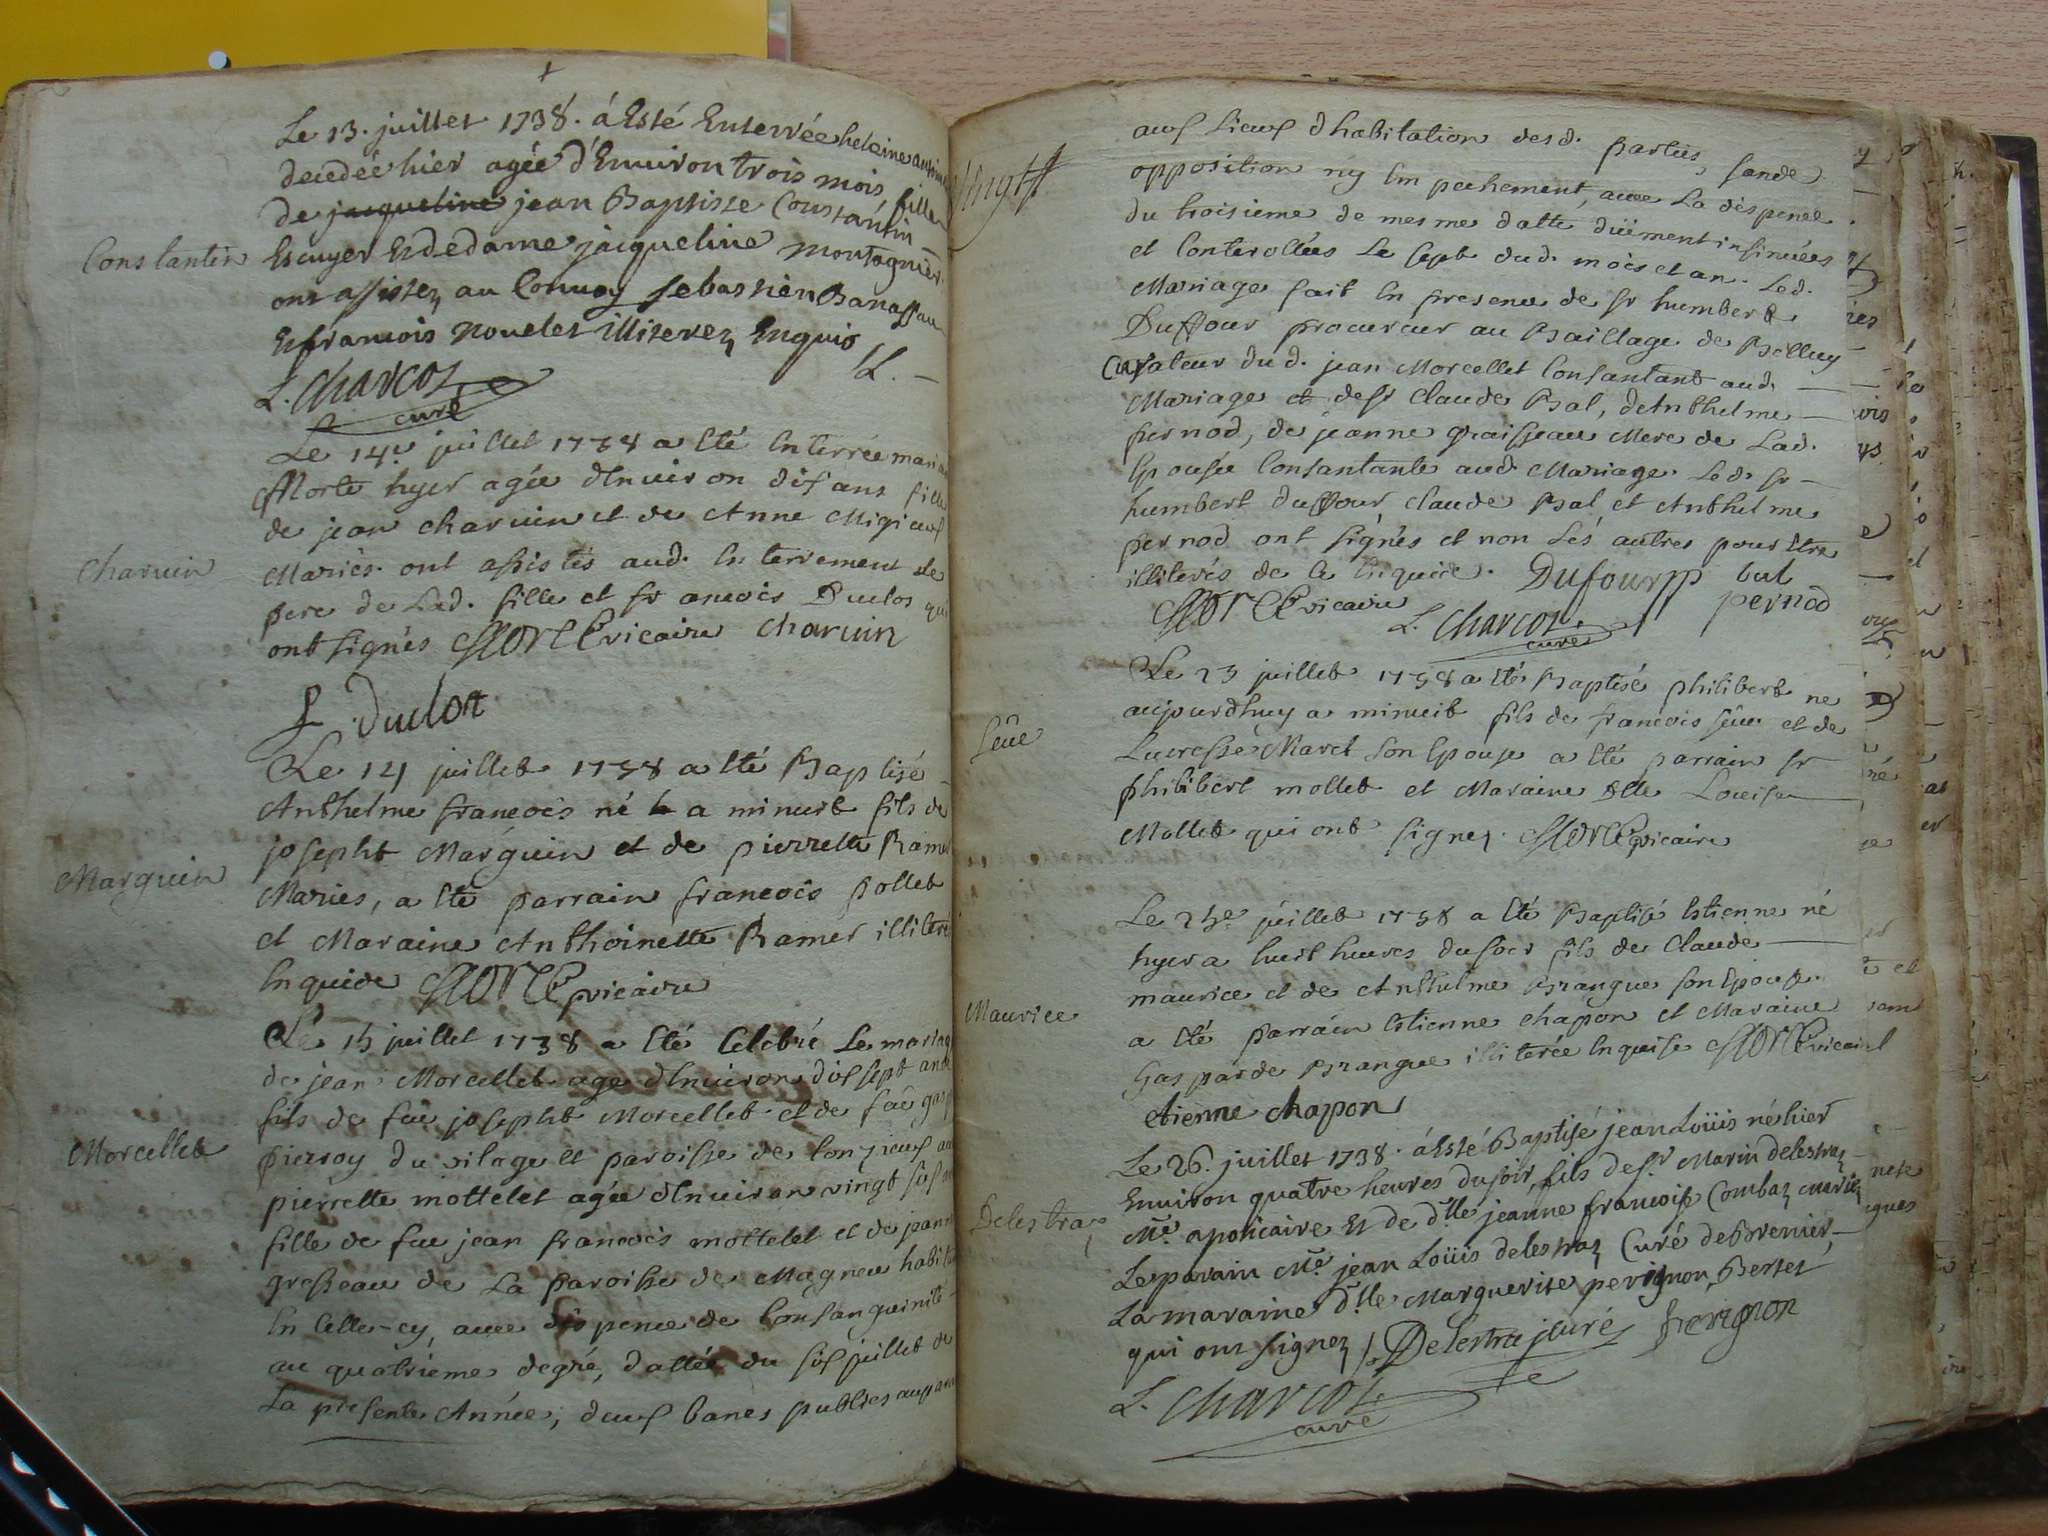 Le 13. juillet 1738. á Esté Enterrée heleine
decedée hier agée d'Environ trois mois fille
de jacqueline jean Baptiste Constantin
Constantin
Escuyer Et de dame jacqueline montagnier
ont assistez au Convoy sebastien
Et francois nouelet illiterez Enquis
L. Charcot
curé
Le 14e juillet 1738 a Eté Enterrée
Morte hyer agée d'Environ dix ans fille
de jean charuin et de Anne
Charuin
Mariés. ont assistés aud. Enterrement Le
pere de Lad. fille et francois Duclos qui
ont signés vicaire charuin
Duclos
Le 14 juillet 1738 a Eté Baptisé
Anthelme francois né a minuit fils de
josepht Marguin et de pierrette Ramel
Marguin
Mariés, a Eté parrain francois pollet
et Maraine Anthoinette Ramel illiteré
Enquise vicaire
Le 15 juillet 1738 a Eté Celebré Le mariage
de jean Morcellet age d'Environ dix sept ans
fils de feu josepht Morcellet et de feüe
Morcellet
pierroy du vilage et paroisse de Conzieux
pierrette mottelet agée d'Environ vingt six
fille de feu jean francois mottelet et de jeanne
grosseau de La paroisse de Magneu
En Celle-cy, avec dispence de Consanguinité
au quatrieme degré, dattée du six juillet de
La presente Année, deux bancs publiés
Vingt
aux Lieux dhabitation desd. parties, sans de
opposition ny Empechement, avec La dispence
du troisieme de mesme datte düement insinuées
et Controllées Le sept dud. mois et an. Led.
Mariage fait En presence de sr humbert
Duffour procureur au Baillage de Belley
Curateur dud. jean Morcellet Consantant aud.
Mariage et de sr Claude Bal, de Anthelme
pernod, de jeanne graisseau Mere de Lad.
Epousée Consantante aud. Mariage. Led. sr
humbert duffour, claude Bal, et Anthelme
pernod ont signés et non Les autres pour Etre
illiterés de ce Enquise. Dufour bal
vicaire L. Charcot pernod
curé
Le 23 juillet 1738 a Eté Baptisé philibert ne
aujourdhuy a minuit fils de francois sêue et de
Sêue
Lucresse Maret son Epouse a Eté parrain sr
philibert mollet et Maraine Dlle Louise
Mollet qui ont signez. vicaire
Le juillet 1738 a Eté Baptisé Estienne né
hyer a huit heures du soir fils de Claude
maurice et de Anthelme Brangue son Epouse
Maurice
a Eté parrain Estienne chapon et Maraine
Gasparde Brangue illiterée Enquise
etienne chapon
Le 26. juillet 1738. á Esté Baptisé jean Loüis né hier
Environ quatre heures du soir, fils de sr. Marin delestraz
Delestraz
Me. apoticaire Et de dlle jeanne francoise Combaz mariez
Le parain Me. jean Loüis delestraz Curé de Brenier,
La maraine dlle Marguerite perignon Bertet
qui ont signez Delestraz curé perignon
L. Charcot
curé